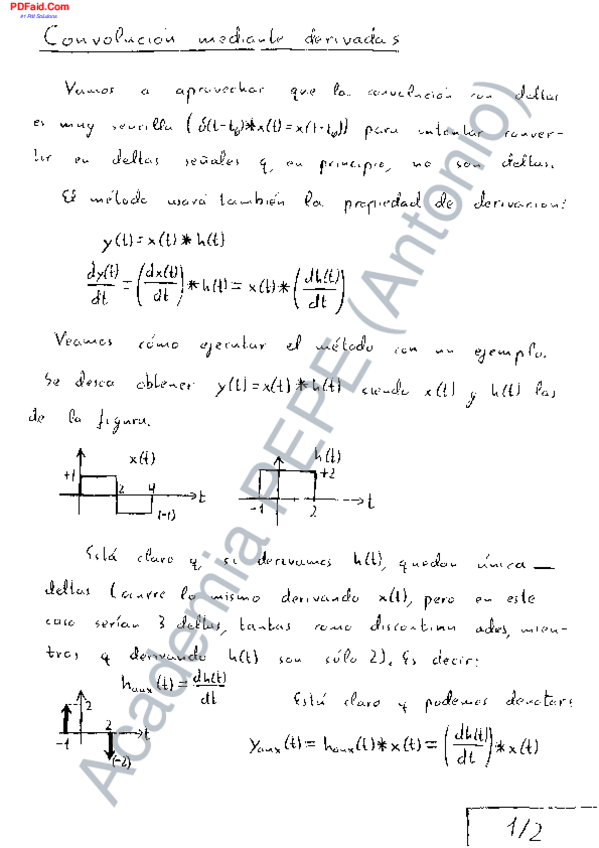 PDFaid.Com
#1 Pdf Solutions
Convolución mediante derivadas
Vamos a aprovechar que la convolución con deltas
es muy sencilla (δ(t-t₀)*x(t)=x(t-t₀)) para intentar conver-
tir en deltas señales q, en principio, no son deltas.
El método usará también la propiedad de derivación:
y(t)=x(t)*h(t)
dy(t)/dt = (dx(t)/dt)*h(t) = x(t)*(dh(t)/dt)
Veamos cómo ejecutar el método con un ejemplo.
Se desea obtener y(t)=x(t)*h(t) siendo x(t) y h(t) las
de la figura.
x(t) h(t)
+1 2 4 t (-1)
+2 -1 2 t
Está claro q, si derivamos h(t), quedan única_
deltas (ocurre lo mismo derivando x(t), pero en este
caso serían 3 deltas, tantas como discontinuidades, mien-
tras q derivando h(t) son sólo 2). Es decir:
h_aux(t) = dh(t)/dt
2 -1 2 t (-2)
Está claro q podemos denotar:
y_aux(t) = h_aux(t)*x(t) = (dh(t)/dt)*x(t)
Academia PEPE (Antonio)
1/2